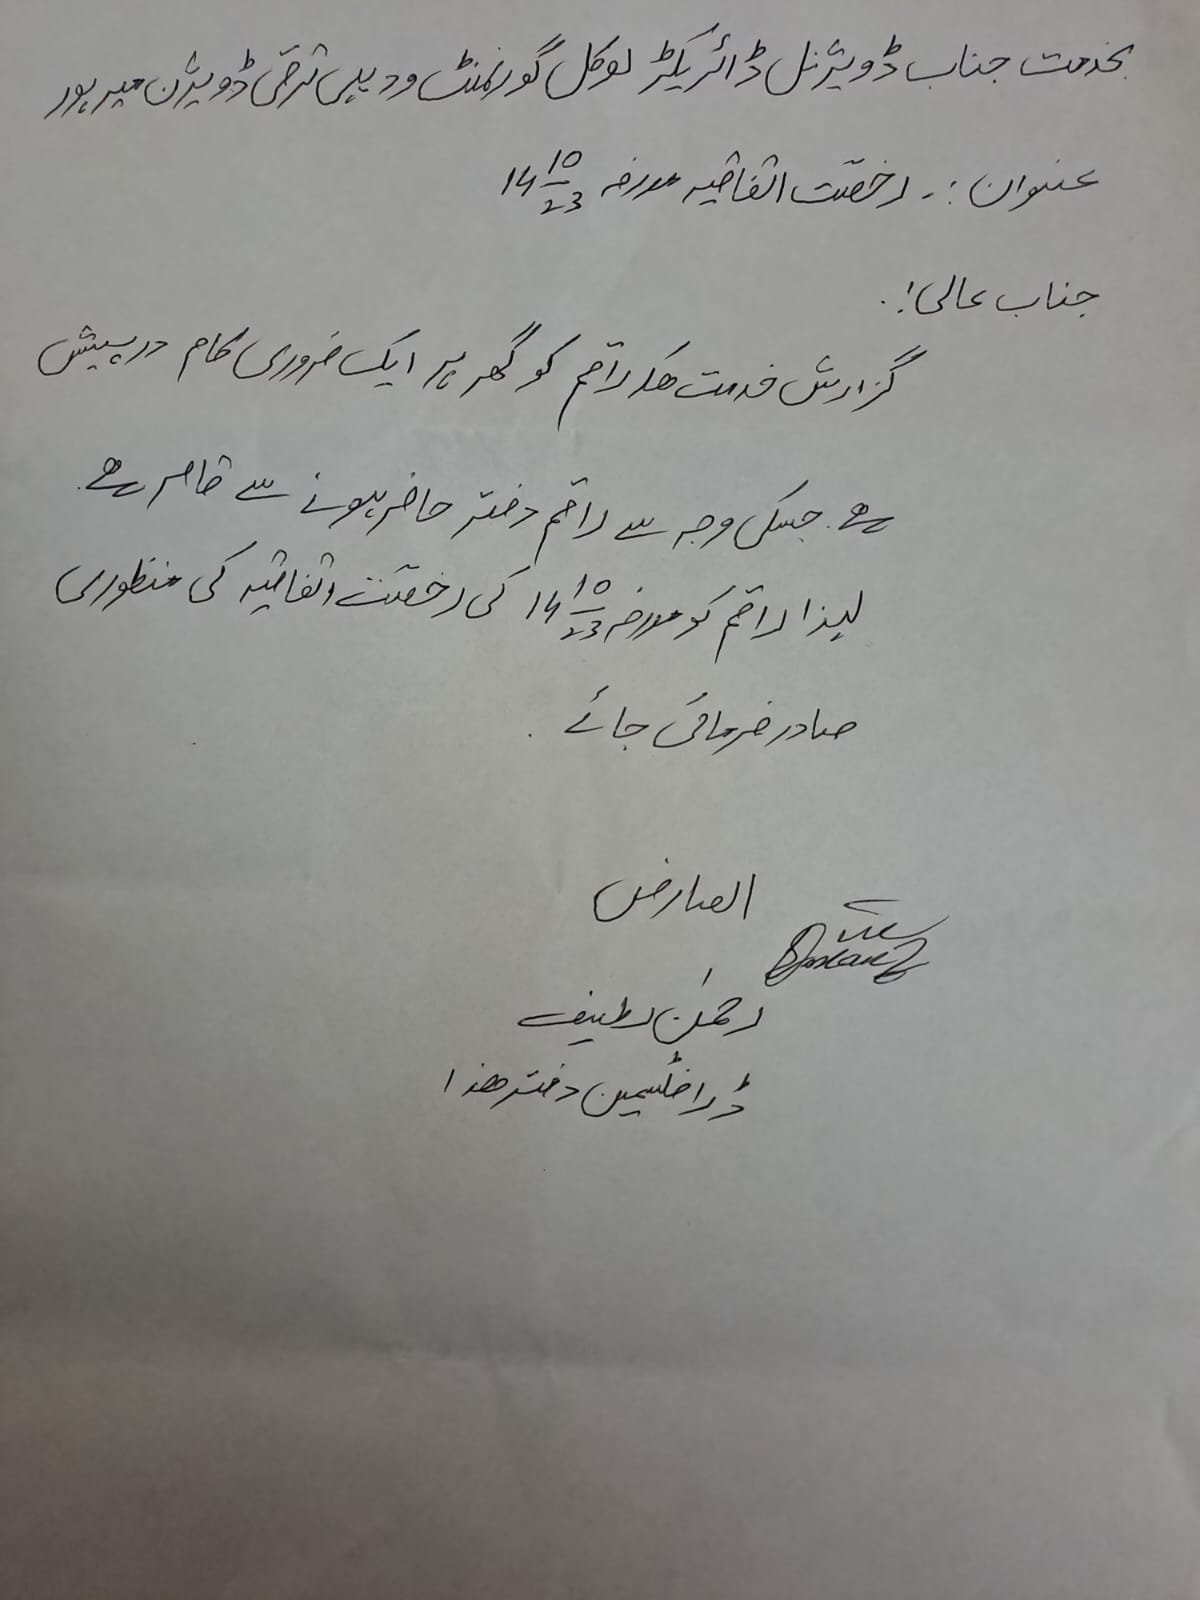 بخدمت جناب ڈویژنل ڈائریکٹر لوکل گورنمنٹ و دیہی ترقی ڈویژن میرپور
عنوان :۔ رخصت اتفاقیہ مورخہ 14 10/23
جناب عالی!
گزارش خدمت ھیکہ راقم کو گھر پر ایک ضروری کام درپیش
ہے۔ جسکی وجہ سے راقم دفتر حاضر ہونے سے قاصر ہے۔
لہذا راقم کو مورخہ 14 10/23 کی رخصت اتفاقیہ کی منظوری
صادر فرمائی جائے۔
العارض
رحمٰن لطیف
ڈرافٹسمین دفتر ھذا